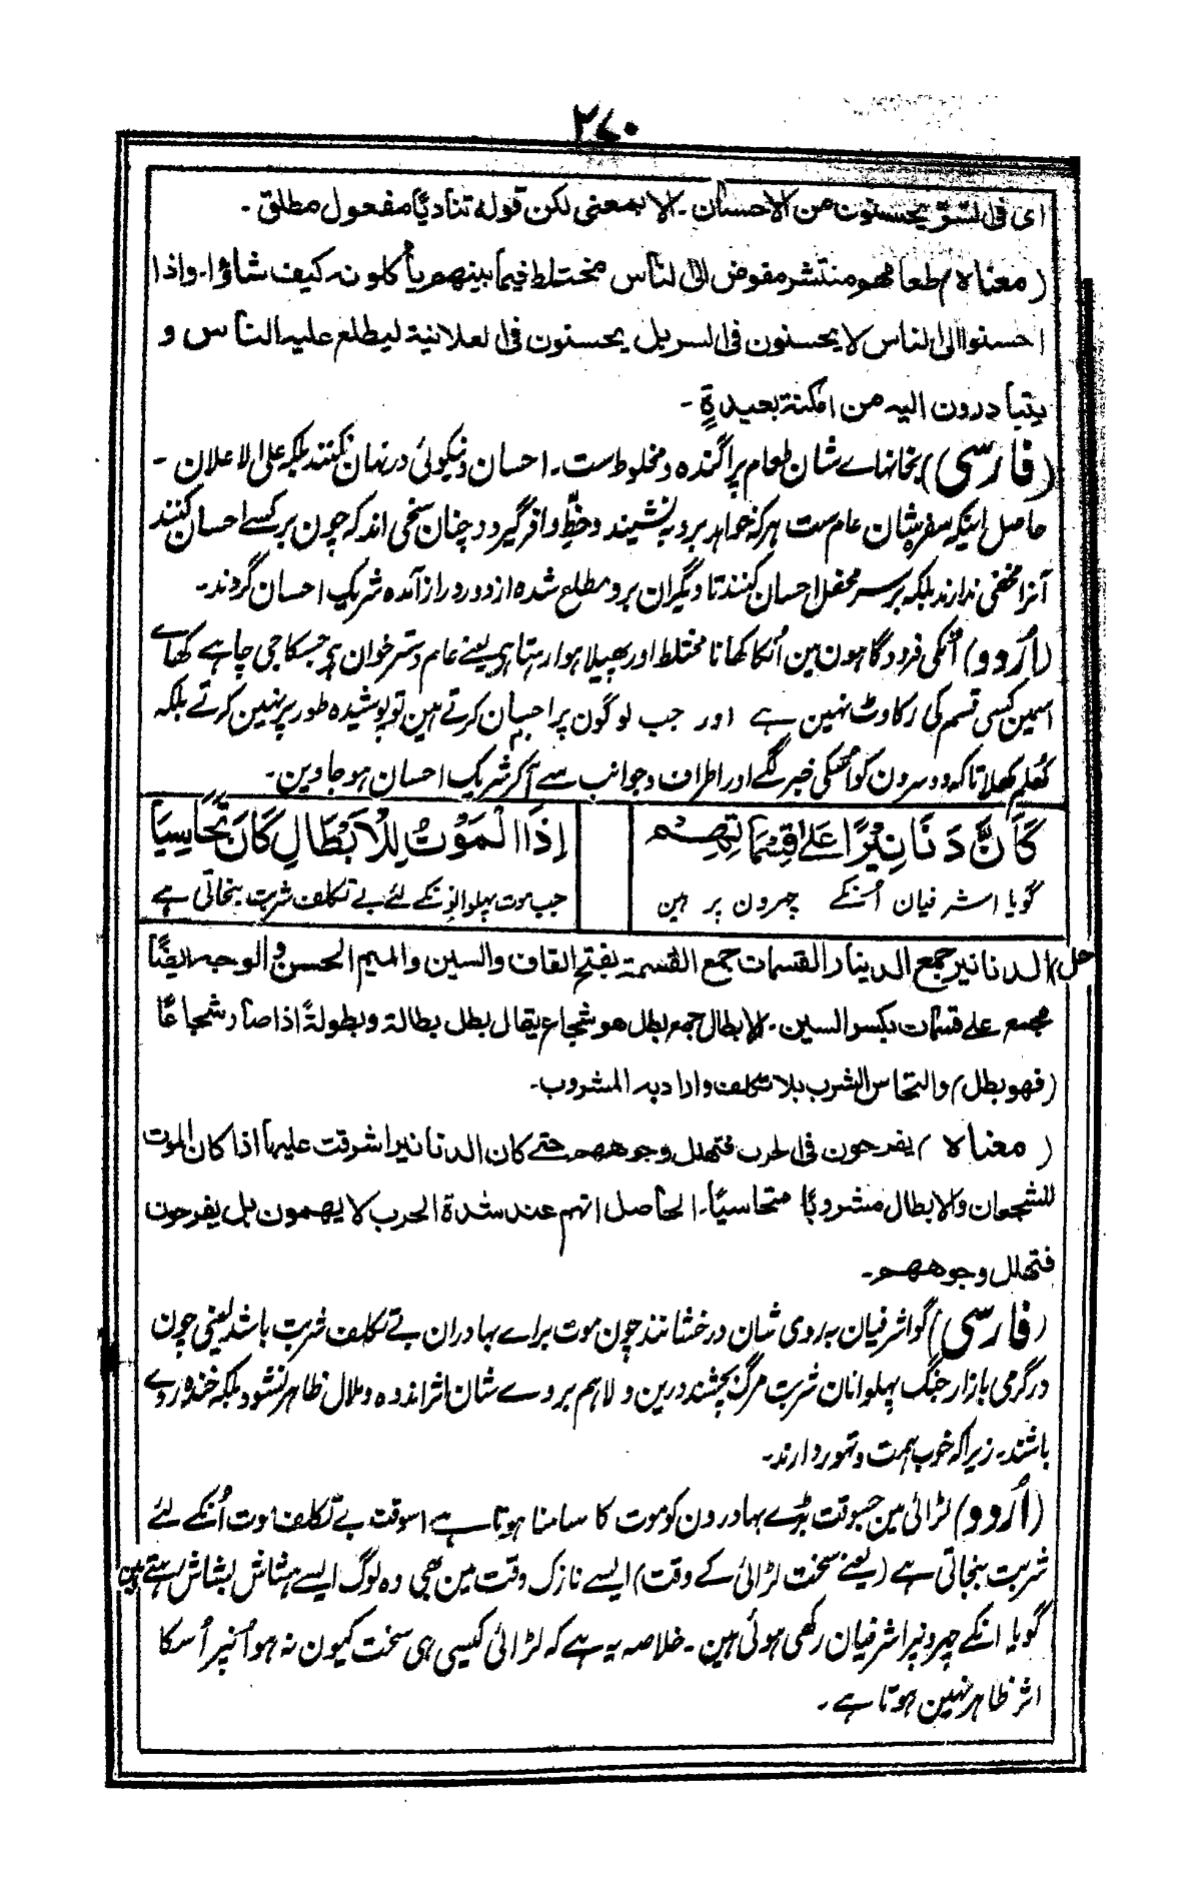 ۲۷۰
ای فی السّرّ یحسنون من الاحسان۔ الا بمعنی لکن قوله تنادیًا مفعول مطلق۔
(معناہ) طعامهم منتشر مفوض الی الناس مختلط فیما بینهم یأکلونه کیف شاؤا۔ واذا
احسنوا الی الناس لا یحسنون فی السر بل یحسنون فی العلانیة لیطلع علیه الناس و
یتبادرون الیه من امکنة بعیدةٍ۔
(فارسی) بخانہاے شان طعام پراگندہ و مخلوط ست۔ احسان و نیکوئی در نہان نکنند بلکہ علی الاعلان۔
حاصل اینکہ سفرہ شان عام ست ہر کہ خواہد برو بنشیند و حظِّ وافر گیرد و چنان سخی اند کہ چون بر کسے احسان کنند
آنرا مخفی ندارند بلکہ بر سر محفل احسان کنند تا دیگران برو مطلع شدہ از دور دراز آمدہ شریک احسان گردند۔
(اُردو) اُنکی فرودگاہون مین اُنکا کھانا مختلط اور پھیلا ہوا رہتا ہے یعنے عام دسترخوان ہے جسکا جی چاہے کھاے
اسمین کسی قسم کی رکاوٹ نہین ہے اور جب لوگون پر احسان کرتے ہین تو پوشیدہ طور پر نہین کرتے بلکہ
کھُلم کھلا تاکہ دوسرون کو اُسکی خبر لگے اور اطراف و جوانب سے آکر شریک احسان ہوجاوین۔
کَاَنَّ دَنَانِیْرًا عَلٰی قِسْمَاتِهِمْ اِذَا الْمَوْتُ لِلْاَبْطَالِ کَانَ تَحَاسِیَا
گویا اشرفیان اُنکے چہرون پر ہین جب موت پہلوانونکے لئے بے تکلف شربت بنجاتی ہے
حل) الدنانیر جمع الدینار القسمات جمع القسمة بفتح القاف والسین والمیم الحسن و الوجه ایضًا
مجمع علی قسمات بکسر السین۔ الابطال جمع بطل هو شجاع یقال بطل بطالة وبطولةً اذا صار شجاعًا
(فهو بطل) والتحاس الشرب بلا تکلف وارادبه المشروب۔
(معناہ) یفرحون فی الحرب فتهلل وجوههم حتے کان الدنانیرا شرقت علیها اذا کان الموت
للشجعان والابطال مشروبًا متحاسیًا۔ الحاصل انهم عند شدة الحرب لا یهمون بل یفرحون
فتهلل وجوههم۔
(فارسی) گو اشرفیان بہ روی شان درخشانند چون موت براے بہادران بے تکلف شربت باشد یعنی چون
در گرمی بازار جنگ پہلوانان شربت مرگ بچشند درین ولا ہم بروے شان اثر اندوہ و ملال ظاہر نشود بلکہ خندہ روے
باشند۔ زیراکہ خوب ہمت و تہور دارند۔
(اُردو) لڑائی مین جسوقت بڑے بہادرون کو موت کا سامنا ہوتا ہے اسوقت بے تکلف موت اُنکے لئے
شربت بنجاتی ہے (یعنے سخت لڑائی کے وقت) ایسے نازک وقت مین بھی وہ لوگ ایسے ہشاش بشاش رہتے ہین
گویا انکے چہرونپر اشرفیان رکھی ہوئی ہین۔ خلاصہ یہ ہے کہ لڑائی کیسی ہی سخت کیون نہ ہو اُنپر اُسکا
اثر ظاہر نہین ہوتا ہے۔